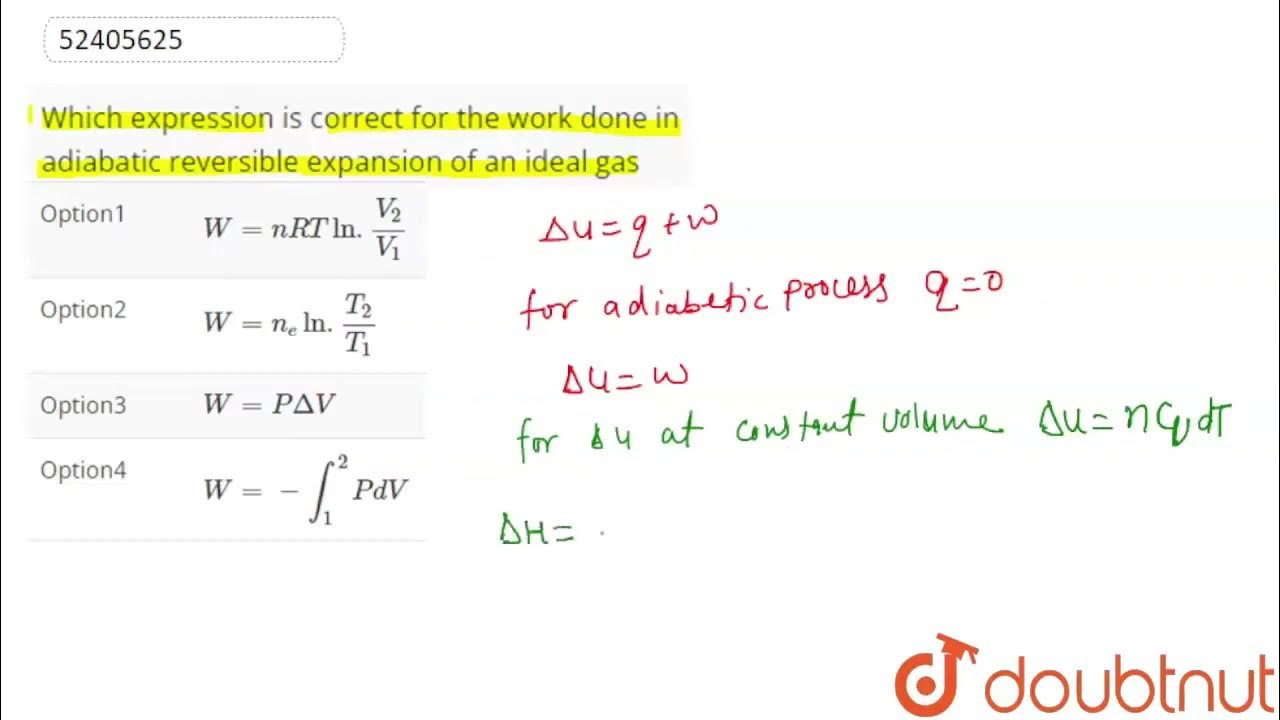 52405625
Which expression is correct for the work done in
adiabatic reversible expansion of an ideal gas
Option1 W = nRT ln. V₂/V₁
Option2 W = nₑ ln. T₂/T₁
Option3 W = PΔV
Option4 W = − ∫₁² PdV
Δu = q + w
for adiabetic process q = 0
Δu = w
for Δu at constant volume Δu = nCvdT
ΔH =
doubtnut